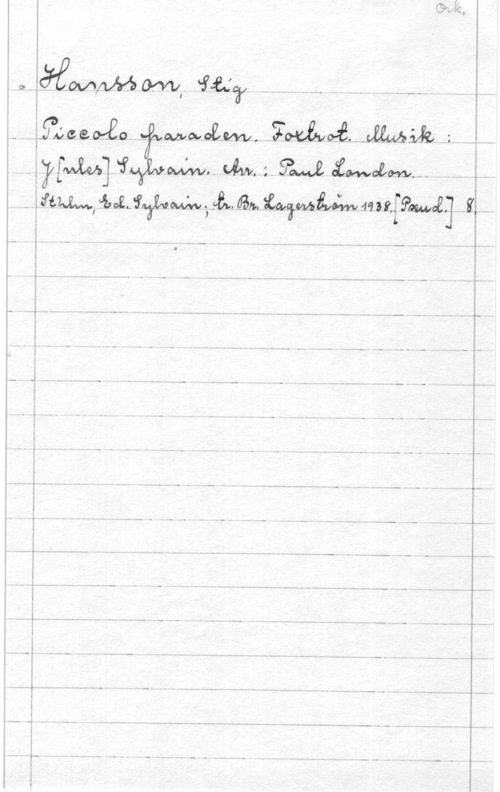 Ork.
Hansson, Stig
Piccolo paraden. Foxtrot. Musik :
J[ules] Sylvain. Arr. : Paul London.
Sthlm, Ed. Sylvain; tr. Br. Lagerström 1938. [Pseud.] 8.